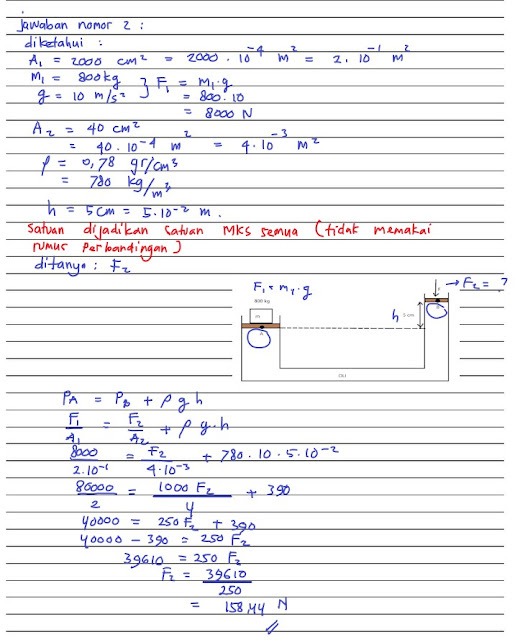 Jawaban nomor 2 :
diketahui :
A₁ = 2000 cm² = 2000 . 10⁻⁴ m² = 2. 10⁻¹ m²
M₁ = 800 kg } F₁ = m₁.g
g = 10 m/s² = 800.10
= 8000 N
A₂ = 40 cm²
= 40. 10⁻⁴ m² = 4.10⁻³ m²
ρ = 0,78 gr/cm³
= 780 kg/m³
h = 5 cm = 5.10⁻² m.
Satuan dijadikan satuan MKS semua (tidak memakai
rumus perbandingan)
ditanya : F₂
F₁ = m₁.g
→ F₂ = ?
800 kg
m
F
h 5 cm
A
B
OLI
P_A = P_B + ρ g h
F₁/A₁ = F₂/A₂ + ρ g.h
8000/2.10⁻¹ = F₂/4.10⁻³ + 780. 10. 5.10⁻²
80000/2 = 1000 F₂/4 + 390
40000 = 250 F₂ + 390
40000 - 390 = 250 F₂
39610 = 250 F₂
F₂ = 39610/250
= 158,44 N